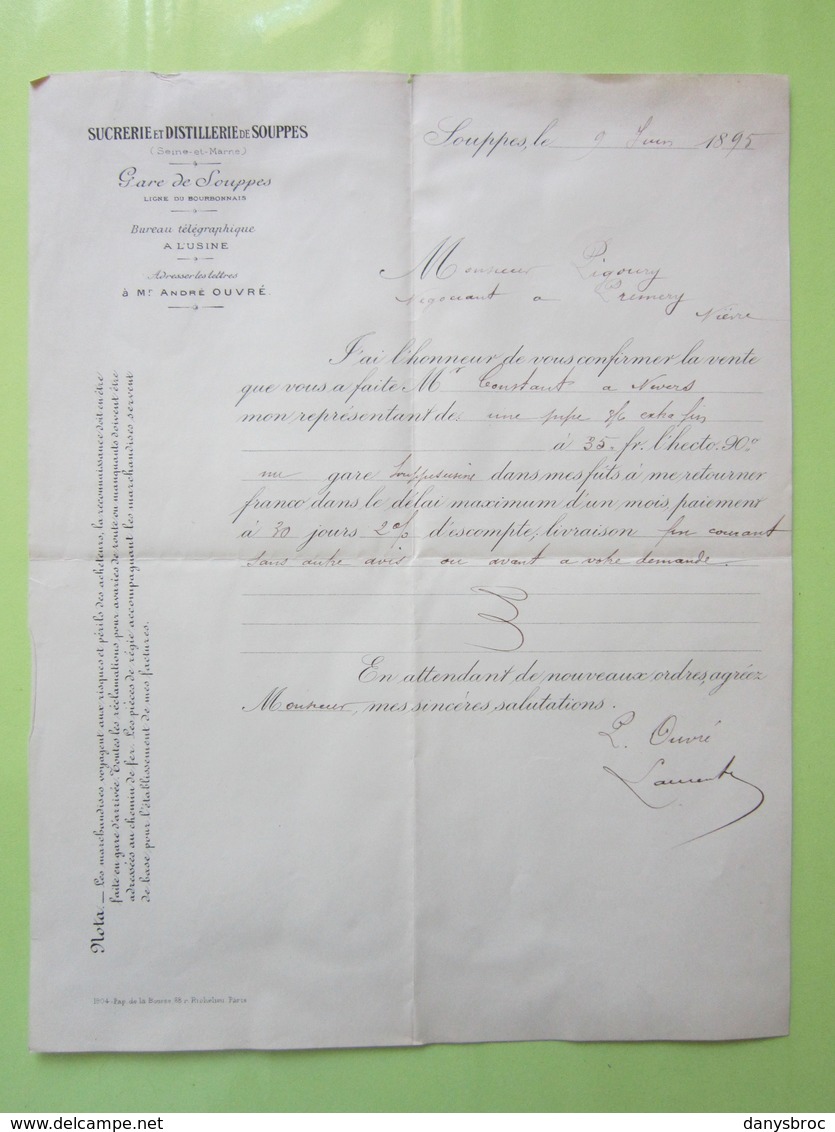 SUCRERIE ET DISTILLERIE DE SOUPPES
(Seine-et-Marne)
Gare de Souppes
LIGNE DU BOURBONNAIS
Bureau télégraphique
A L'USINE
Adresser les lettres
à Mr ANDRÉ OUVRÉ.
Souppes, le 9 Juin 1895
Monsieur Ligoury
Négociant a Prémery
Nièvre
J'ai l'honneur de vous confirmer la vente
que vous a faite Mr Constant a Nevers
mon représentant de: une pipe 3/6 extra fin
à 35. fr. l'hecto. 90°
nu gare Souppes usine dans mes fûts à me retourner
franco dans le délai maximum d'un mois, paiement
à 30 jours 2% d'escompte; livraison fin courant
sans autre avis ou avant a votre demande.
En attendant de nouveaux ordres, agréez
Monsieur, mes sincères salutations.
Ouvré
Nota.— Les marchandises voyagent aux risques et périls des acheteurs, la reconnaissance doit en être
faite en gare d'arrivée. Toutes les réclamations pour avaries de route ou manquants doivent être
adressées au chemin de fer. Les pièces de régie accompagnant les marchandises servent
de base pour l'établissement de mes factures.
1954-Pap. de la Bourse 88 r. Richelieu. Paris
delcampe.net
danysbroc